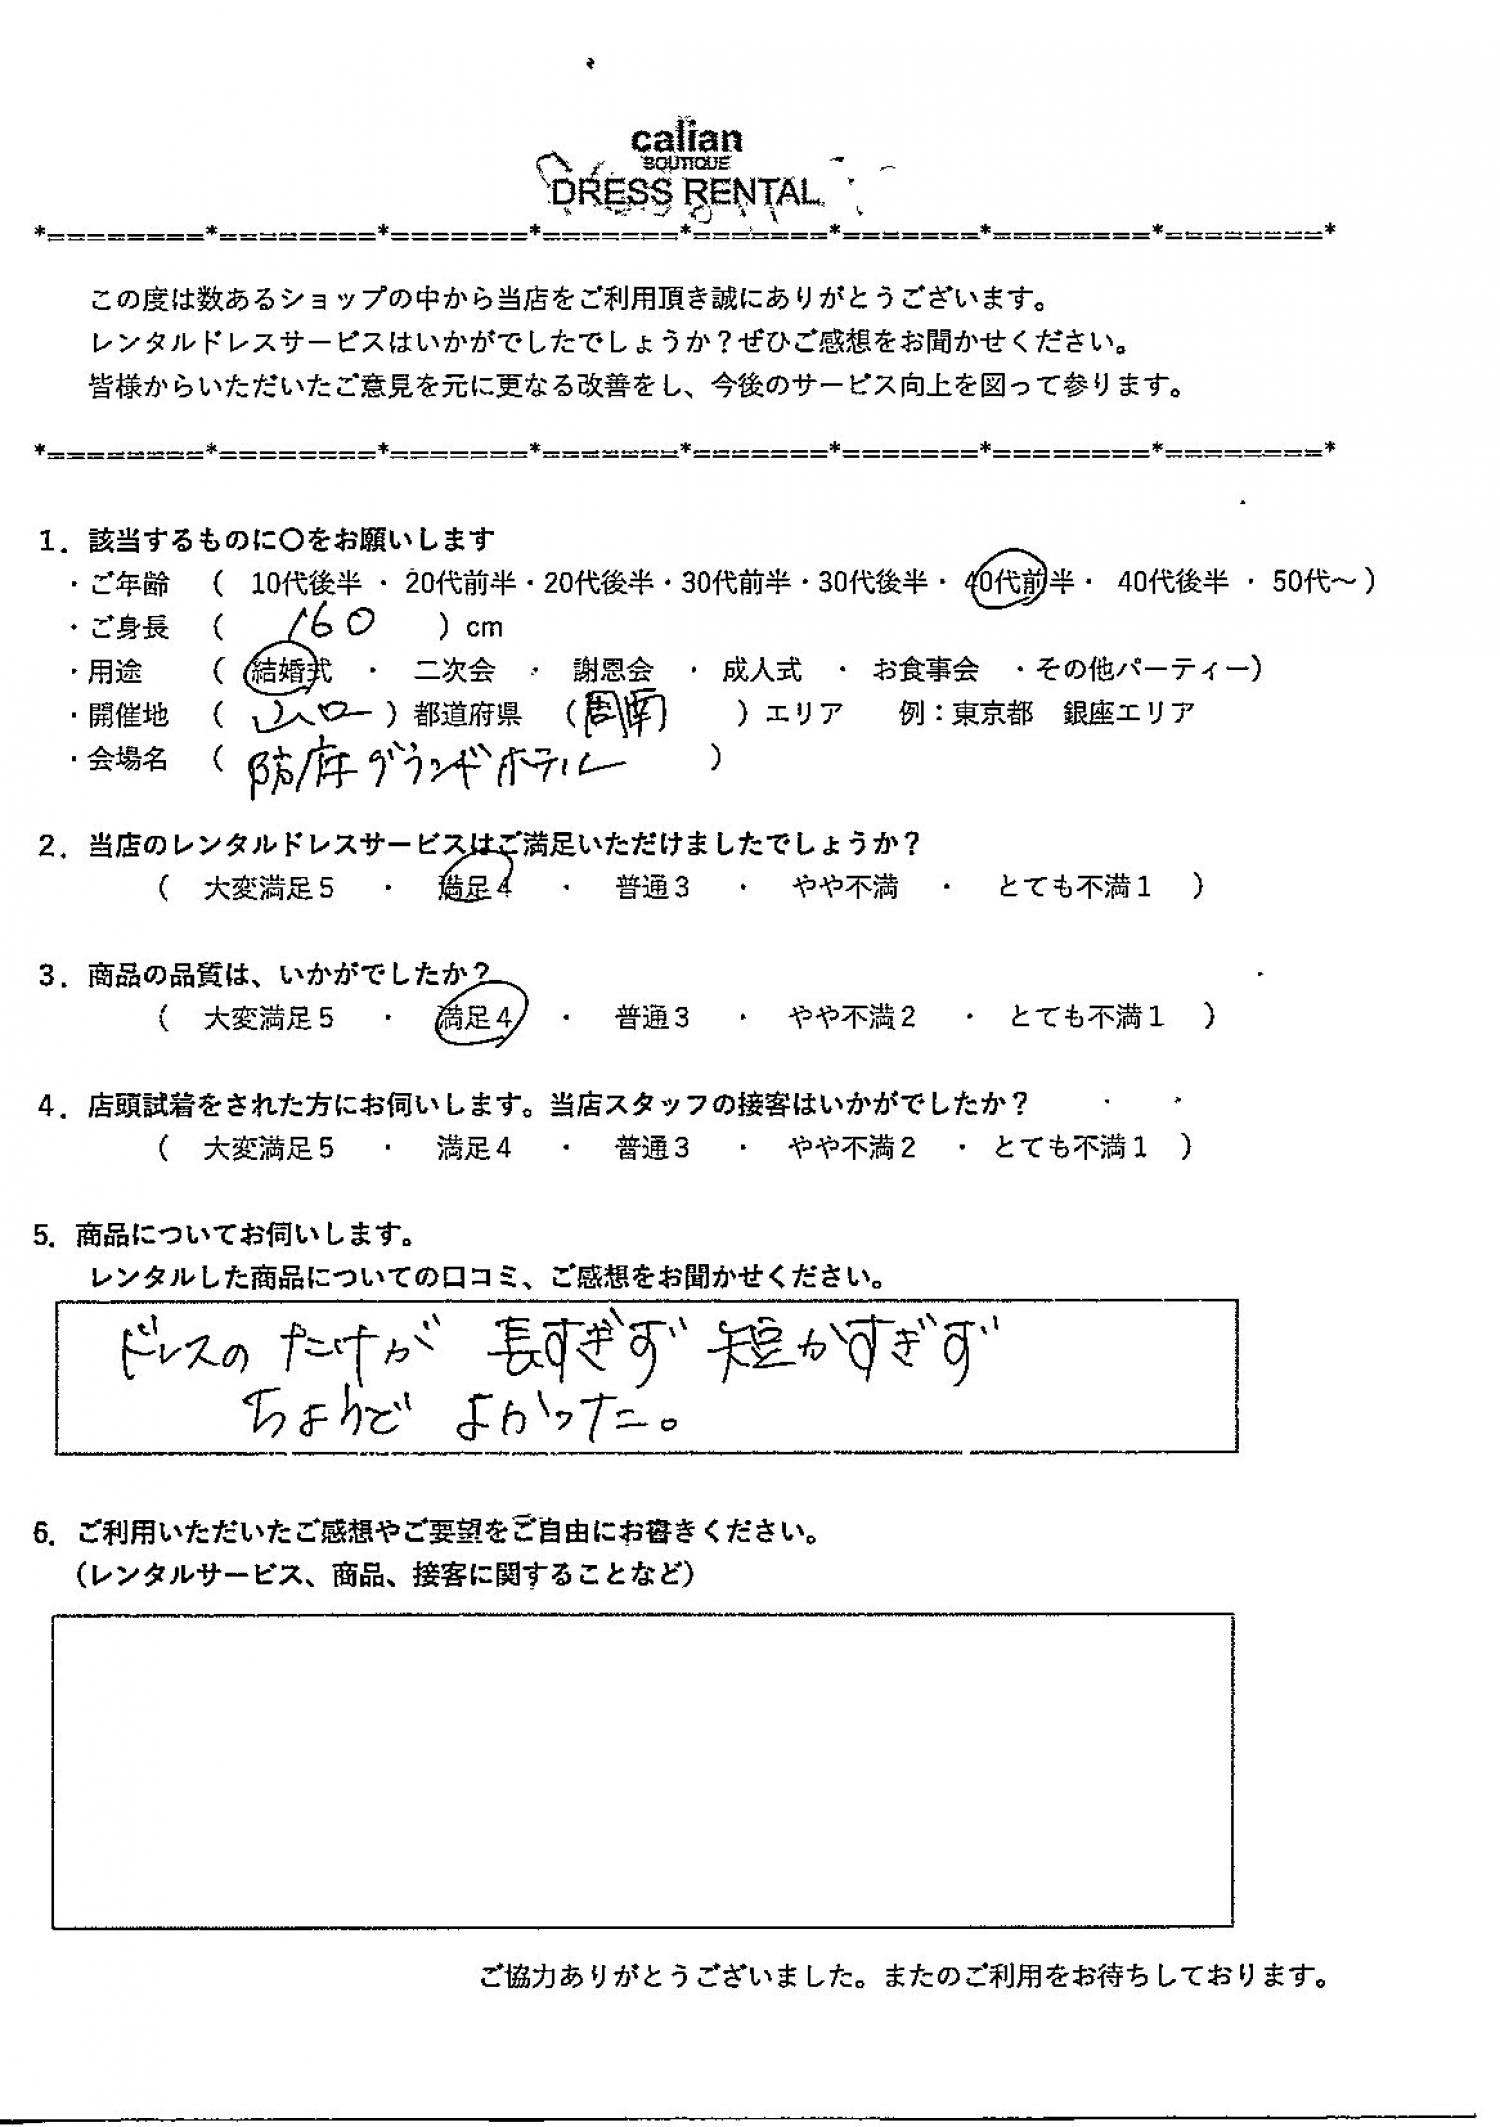 calian
BOUTIQUE
DRESS RENTAL
*========*========*=======*=======*=======*=======*========*========*
この度は数あるショップの中から当店をご利用頂き誠にありがとうございます。
レンタルドレスサービスはいかがでしたでしょうか？ぜひご感想をお聞かせください。
皆様からいただいたご意見を元に更なる改善をし、今後のサービス向上を図って参ります。
*========*========*=======*=======*=======*=======*========*========*
1．該当するものに〇をお願いします
・ご年齢 （ 10代後半 ・ 20代前半・20代後半・30代前半・30代後半・ 40代前半・ 40代後半 ・ 50代～）
・ご身長 （ 160 ）cm
・用途 （ 結婚式 ・ 二次会 ・ 謝恩会 ・ 成人式 ・ お食事会 ・その他パーティー）
・開催地 （ 山口 ）都道府県 （周南 ）エリア 例：東京都 銀座エリア
・会場名 （ 防府グランドホテル ）
2．当店のレンタルドレスサービスはご満足いただけましたでしょうか？
（ 大変満足５ ・ 満足４ ・ 普通３ ・ やや不満 ・ とても不満１ ）
3．商品の品質は、いかがでしたか？
（ 大変満足５ ・ 満足４ ・ 普通３ ・ やや不満２ ・ とても不満１ ）
4．店頭試着をされた方にお伺いします。当店スタッフの接客はいかがでしたか？
（ 大変満足５ ・ 満足４ ・ 普通３ ・ やや不満２ ・ とても不満１ ）
5．商品についてお伺いします。
レンタルした商品についての口コミ、ご感想をお聞かせください。
ドレスの たけが 長すぎず 短かすぎず
ちょうで よかった。
6．ご利用いただいたご感想やご要望をご自由にお書きください。
（レンタルサービス、商品、接客に関することなど）
ご協力ありがとうございました。またのご利用をお待ちしております。